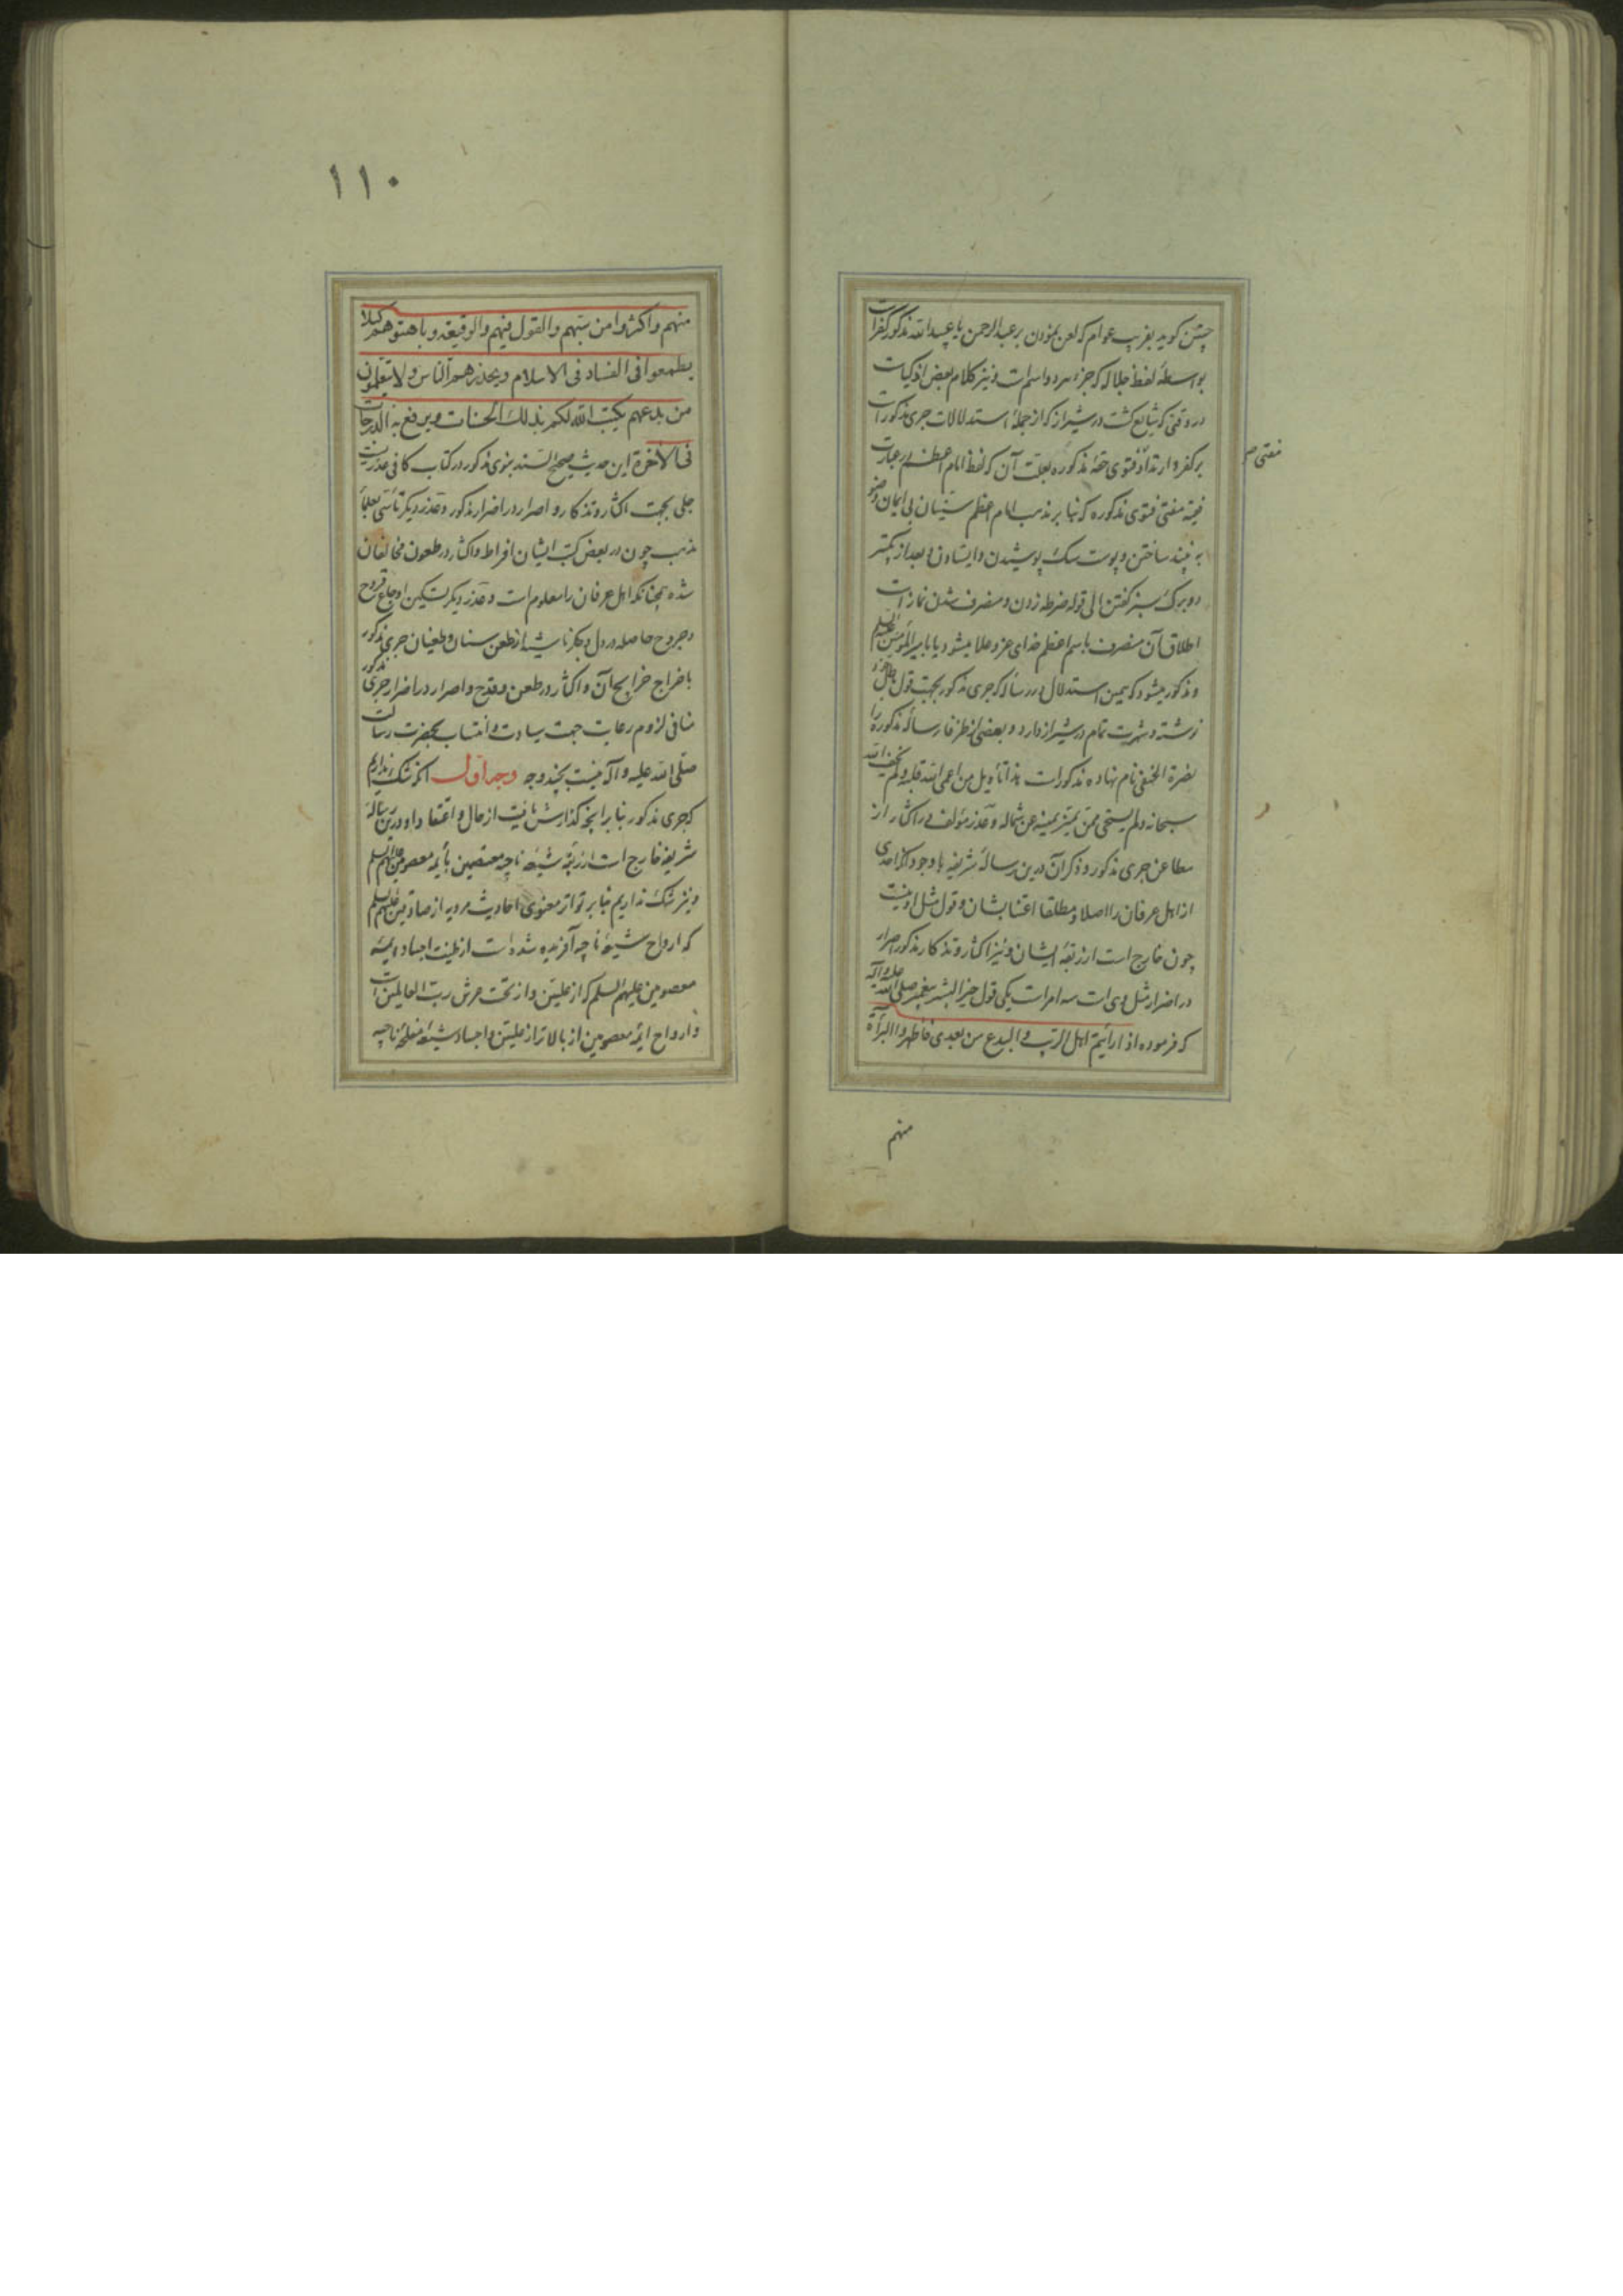 چنین گوید بفریب عوام که لعن نمودن بر عبدالرحمن یا عبدالله مذکور کفر است
بواسطهٔ لفظ جلاله که جزء هر دو اسم است و نیز کلام بعض اذکیاست
در وقتی که شایع گشت در شیراز که از جملهٔ استدلالات جری مذکور است
بر کفر و ارتداد فتوی حقهٔ مذکوره بعلت آن که لفظ امام اعظم در عبارت
مفتی
فقیه مفتی فتوی مذکوره که بنا بر مذهب امام اعظم سنّیان بی ایمان وضو
به نبیذ ساختن و پوست سگ پوشیدن و ایستادن و بعد از تکبیر
دو برگ سبز گفتن الی قوله ضرطه زدن و منصرف شدن نماز است
اطلاق آن منصرف باسم اعظم خدای عز و علا میشود یا بامیرالمؤمنین علیه السلم
و مذکور میشود که همین استدلال در رساله که جری مذکور بجهت قول باطل خود
نوشته و شهرت تمام در شیراز دارد و بعضی از ظرفا رسالهٔ مذکوره را
نصرة الحنفی نام نهاده مذکور است هذا تأویل من اعمی الله قلبه و لم یخف الله
سبحانه و لم یستحی ممن یمیز یمینه عن شماله و عذر مؤلف در اکثار از
مطاعن جری مذکور و ذکر آن درین رسالهٔ شریفه با وجود آنکه احدی
از اهل عرفان را اصلا و مطلقا اعتنا بشان و قول مثل او نیست
چون خارج است از ربقهٔ ایشان و نیز اکثار و تذکار مذکور و اصرار
در اضرار مثل وی است سه امر است یکی قول خیر البشر پیغمبر صلی الله علیه وآله
که فرموده اذا رأیتم اهل الریب و البدع من بعدی فاظهروا البرأة
منهم
۱۱۰
منهم واکثروا من سبّهم والقول فیهم والوقیعة وباهتوهم کیلا
یطمعوا فی الفساد فی الاسلام ویحذرهم الناس ولا یتعلمون
من بدعهم یکتب الله لکم بذلک الحسنات ویرفع به الدرجات
فی الآخرة این حدیث صحیح السند نبوی مذکور در کتاب کافی عذریست
جلی بجهت اکثار و تذکار و اصرار در اضرار مذکور و عذر دیگر تأسی بعلمآء
مذهب چون در بعض کتب ایشان افراط و اکثار در طعون مخالفان
شده چنانکه اهل عرفان را معلوم است و عذر دیگر تسکین اوجاع قروح
و جروح حاصله در دل و جگر ناشیه از طعن سنان و طغیان جری مذکور
باخراج خراج آن و اکثار در طعن و قدح و اصرار در اضرار جری مذکور
منافی لزوم رعایت جهت سیادت و انتساب بحضرت رسالت
صلی الله علیه و آله نیست بچند وجه وجه اول آنکه شک نداریم
که جری مذکور بنا بر آنچه گذارش یافت از حال و اعتقاد او درین رسالهٔ
شریفه خارج است از ربقهٔ شیعهٔ ناجیه معتصمین بأیمه معصومین علیهم السلم
و نیز شک نداریم بنا بر تواتر معنوی احادیث مرویه از صادقین علیهم السلم
که ارواح شیعهٔ ناجیه آفریده شده است از طینت اجساد ایمه
معصومین علیهم السلم که از علیین و از تحت عرش رب العالمین است
و ارواح ایمه معصومین از بالاتر از علیین و اجساد شیعهٔ مفلحهٔ ناجیه